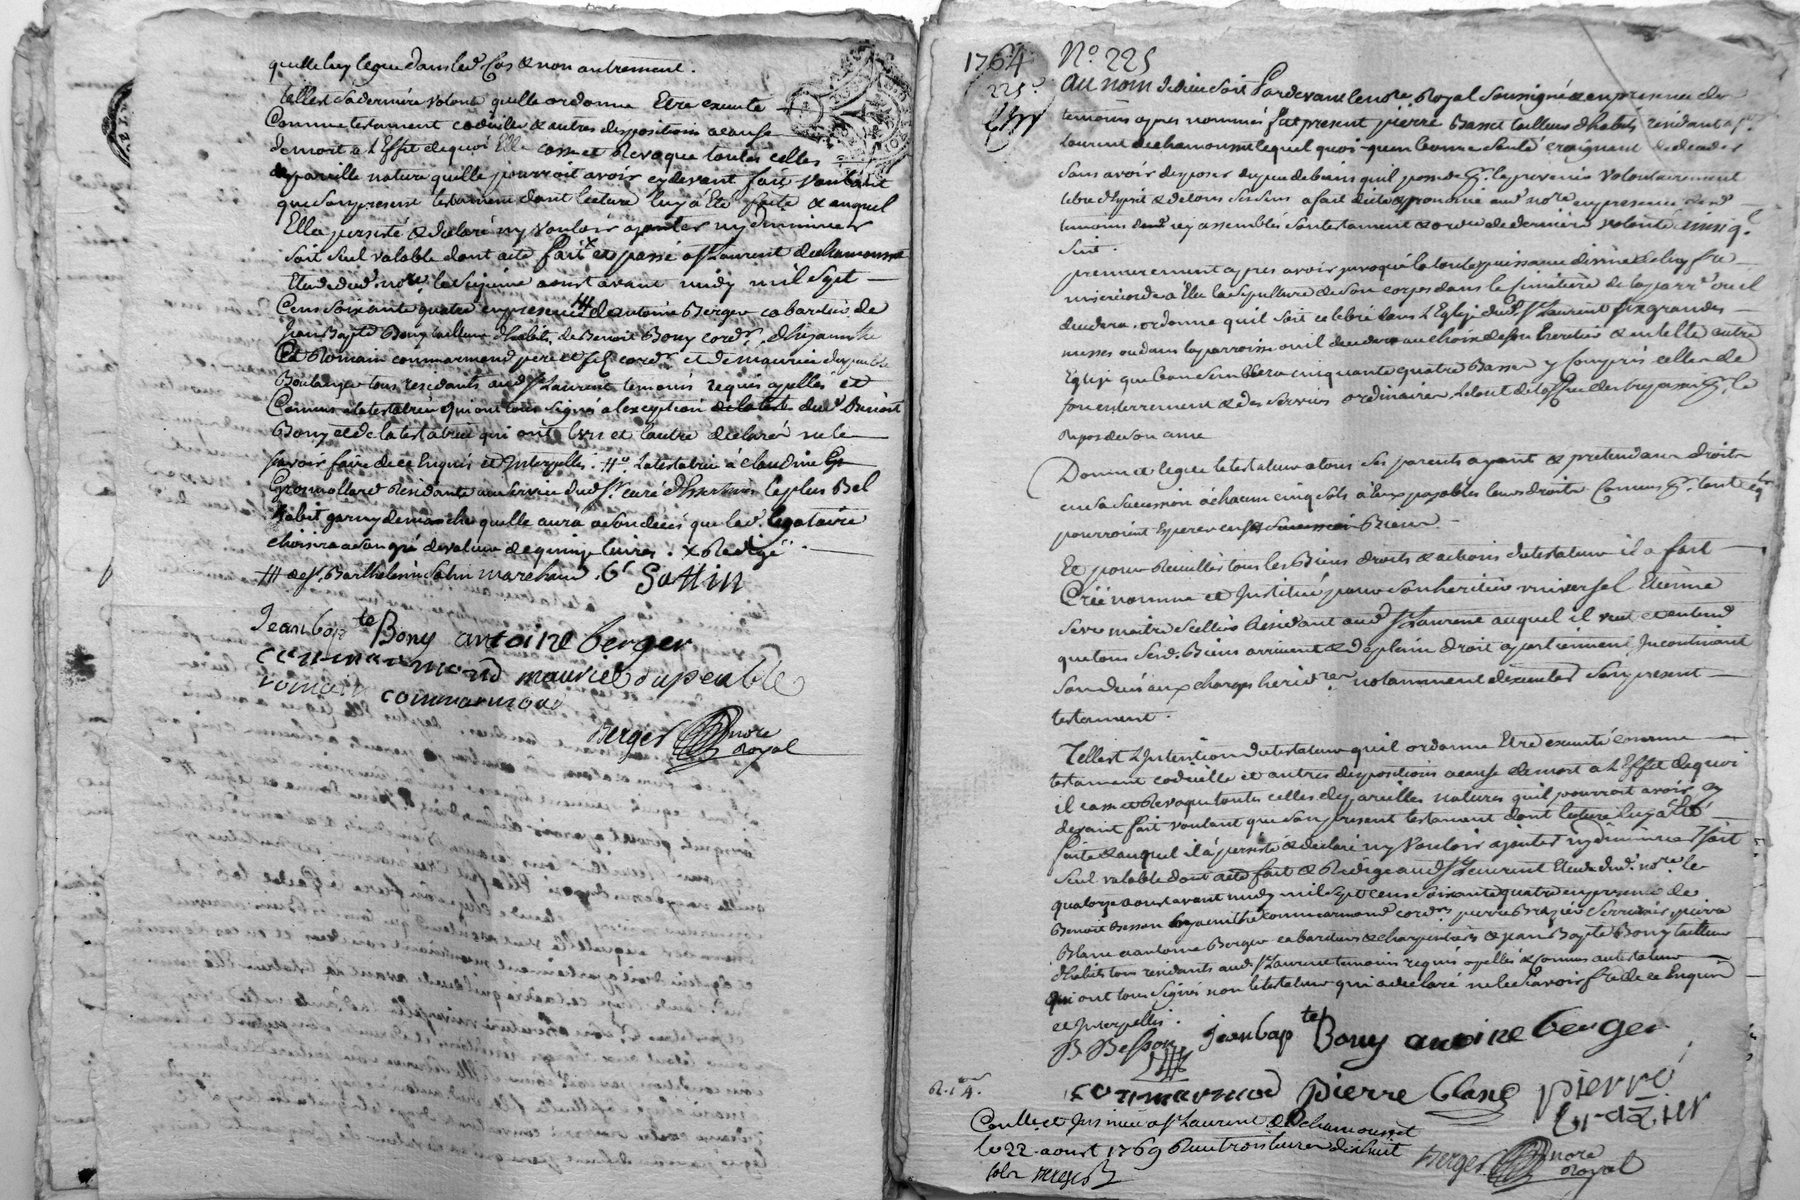 quelle luy legue dans led. Cas & non autrement.
telle est sa derniere volonté quelle ordonne Etre executé
Comme testament codicille & autres dispositions a cause
de mort a l'Effet de quoi Elle casse et Revoque toutes celles
de pareille nature quelle pourroit avoir cydevant fait voulant
que son present testament dont lecture luy á Eté faite & auquel
Elle á persisté & déclaré n'y vouloir ajouter n'y diminuer
soit seul valable dont acte fait x et passé a St Laurent de chamousset
Etude dud. nore. le sixieme aoust avant midy mil sept
Cens soixante quatre en presence # de antoine Berger cabartier, de
Jean Bapte Bony tailleur d'habits, de Benoit Bony cordr. d'hyacinthe
Et Romain commarmond pere et fils cordrs et de maurice dupeuble
Boulanger tous residants aud. St Laurent temoins requis apellés et
Connus a la testatrice qui ont tous signé a l'exception dud. Benoit
Bony et de la testatrice qui ont l'un et l'autre déclaré ne le
savoir faire de ce Enquis et Interpellés. #. la testatrice á claudine
Gromollard Residante au service dud. Sr. curé le plus Bel
habit garny de manche quelle aura a son decés que lad. legataire
choisira a son gré de valeur de quinze livres. x Redigé
# de Sr. Barthelemi Satin marchand. Satin
Jean bapte Bony antoine berger
commarmond maurice dupeuble
romain commarmond
Berger nore royal
1764 No. 225
225.
Au nom de dieu soit Pardevant le nore. Royal Soussigné & en presence des
temoins apres nommés fut present pierre Basset tailleur d'habits residant a St.
Laurent de chamousset lequel quoi-qu'en bonne santé craignant de deceder
sans avoir disposer du peu de biens qu'il posede volontairement
libre d'Esprit & de tous ses sens a fait dicté & prononcé aud. nore en presence desd.
temoins assemblés son testament & ordonnance de derniere volonté ainsi q.
suit.
premierement apres avoir invoqué la toute puissance divine de luy fre
misericorde Elu la sepulture de son corps dans le simitiere de la parre. ou il
decedera, ordonne quil soit celebré dans l'Eglise dud. St Laurent six grandes
messes ou dans la parroisse ou il decedera au choix de son heritier & en telle autre
Eglise que bon semblera cinquante quatre Basses y compris celles de
son enterrement & des services ordinaires le tout
Repos de son ame
Donne et legue le testateur a tous ses parents ayant & pretendans droits
en sa succession á chacun cinq sols á Eux payables leurs droits Connus
pourroient Esperer en sa succession
Et pour Recueillir tous les Biens droits & actions du testateur il a fait
Créé nommé et Institué pour son heritier universel Etienne
maitre sellier Residant aud. St Laurent auquel il veut et entend
que tous sesd. Biens arrivent & de plein droit apartiennent Incontinant
son decés aux charges herédres notamment d'executer son present
testament.
Telle est l'Intention du testateur quil ordonne Etre executé comme
testament codicille et autres dispositions a cause de mort a l'Effet de quoi
il casse et Revoque toutes celles de pareilles natures quil pourroit avoir cy
devant fait voulant que son present testament dont lecture luy á Eté
faite & auquel il á persisté & declaré n'y vouloir ajouter n'y diminuer soit
seul valable dont acte fait & Redigé aud. St Laurent Etude dud. nore. le
quatorze aoust avant midy mil sept cens soixante quatre en presence de
Benoit Besson hyacinthe commarmond cordrs pierre Brazier serrurier pierre
Blanc antoine Berger cabartiers & charpentiers & jean Bapte Bony tailleur
d'habits tous residants aud. St Laurent temoins requis apellés & connus au testateur
qui ont tous signés non le testateur qui a declaré ne le savoir fre de ce Enquis
et Interpellé.
B Besson jean bapte Bony antoine berger
commarmond pierre blanc pierre
brazier
Conllé et Insinué a St Laurent de Chamousset
le 22. aoust 1769 Reçu trois livres dix huit
sols Berger
Berger nore royal